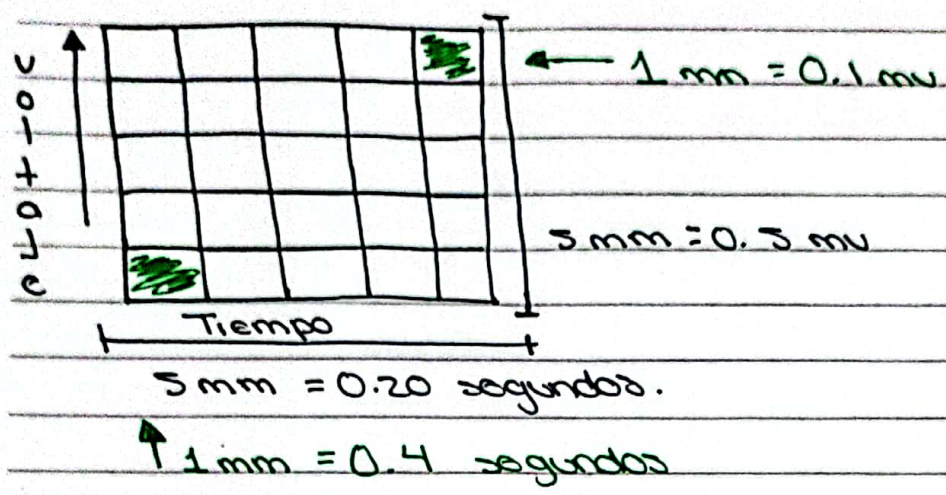 voltaje
1 mm = 0.1 mv
5 mm = 0.5 mv
Tiempo
5 mm = 0.20 segundos.
1 mm = 0.4 segundos